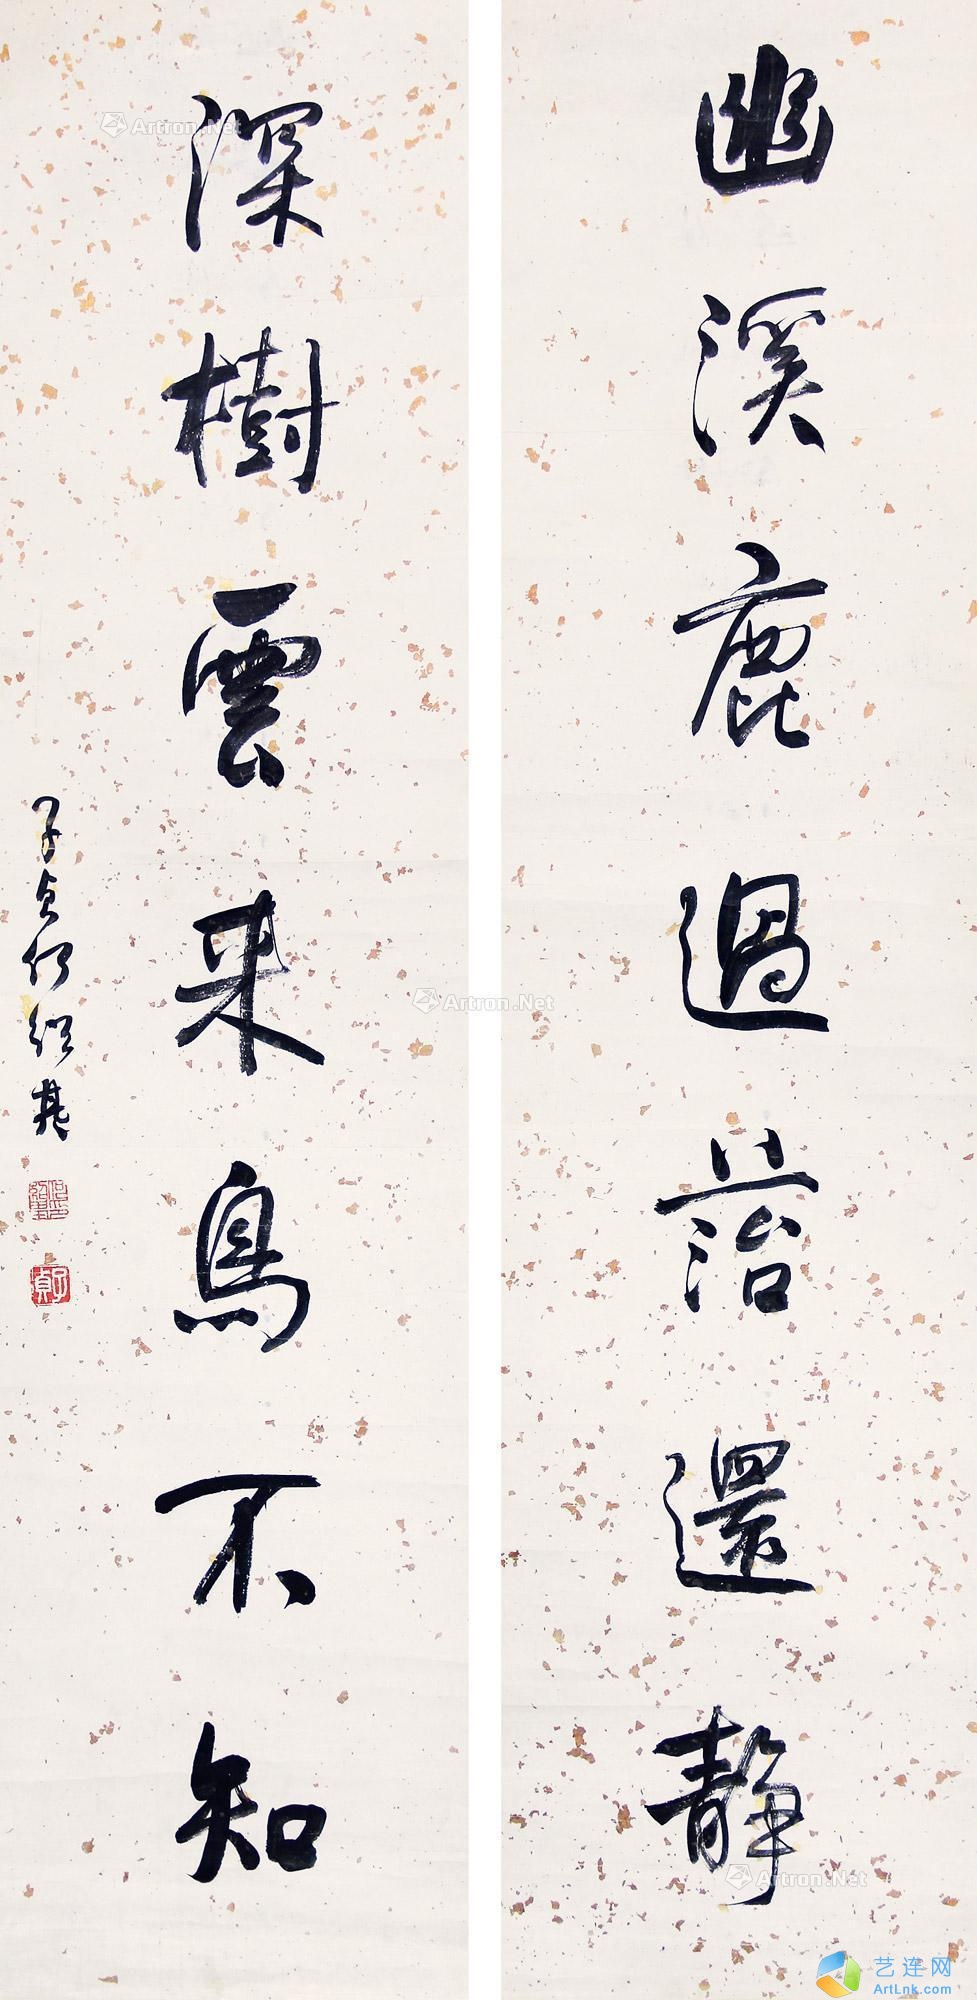 幽溪鹿過蓞還靜
深樹雲来鳥不知
子貞何紹基
子貞
Artron.Net
Artron.Net
Artron.Net
艺连网
ArtLnk.com